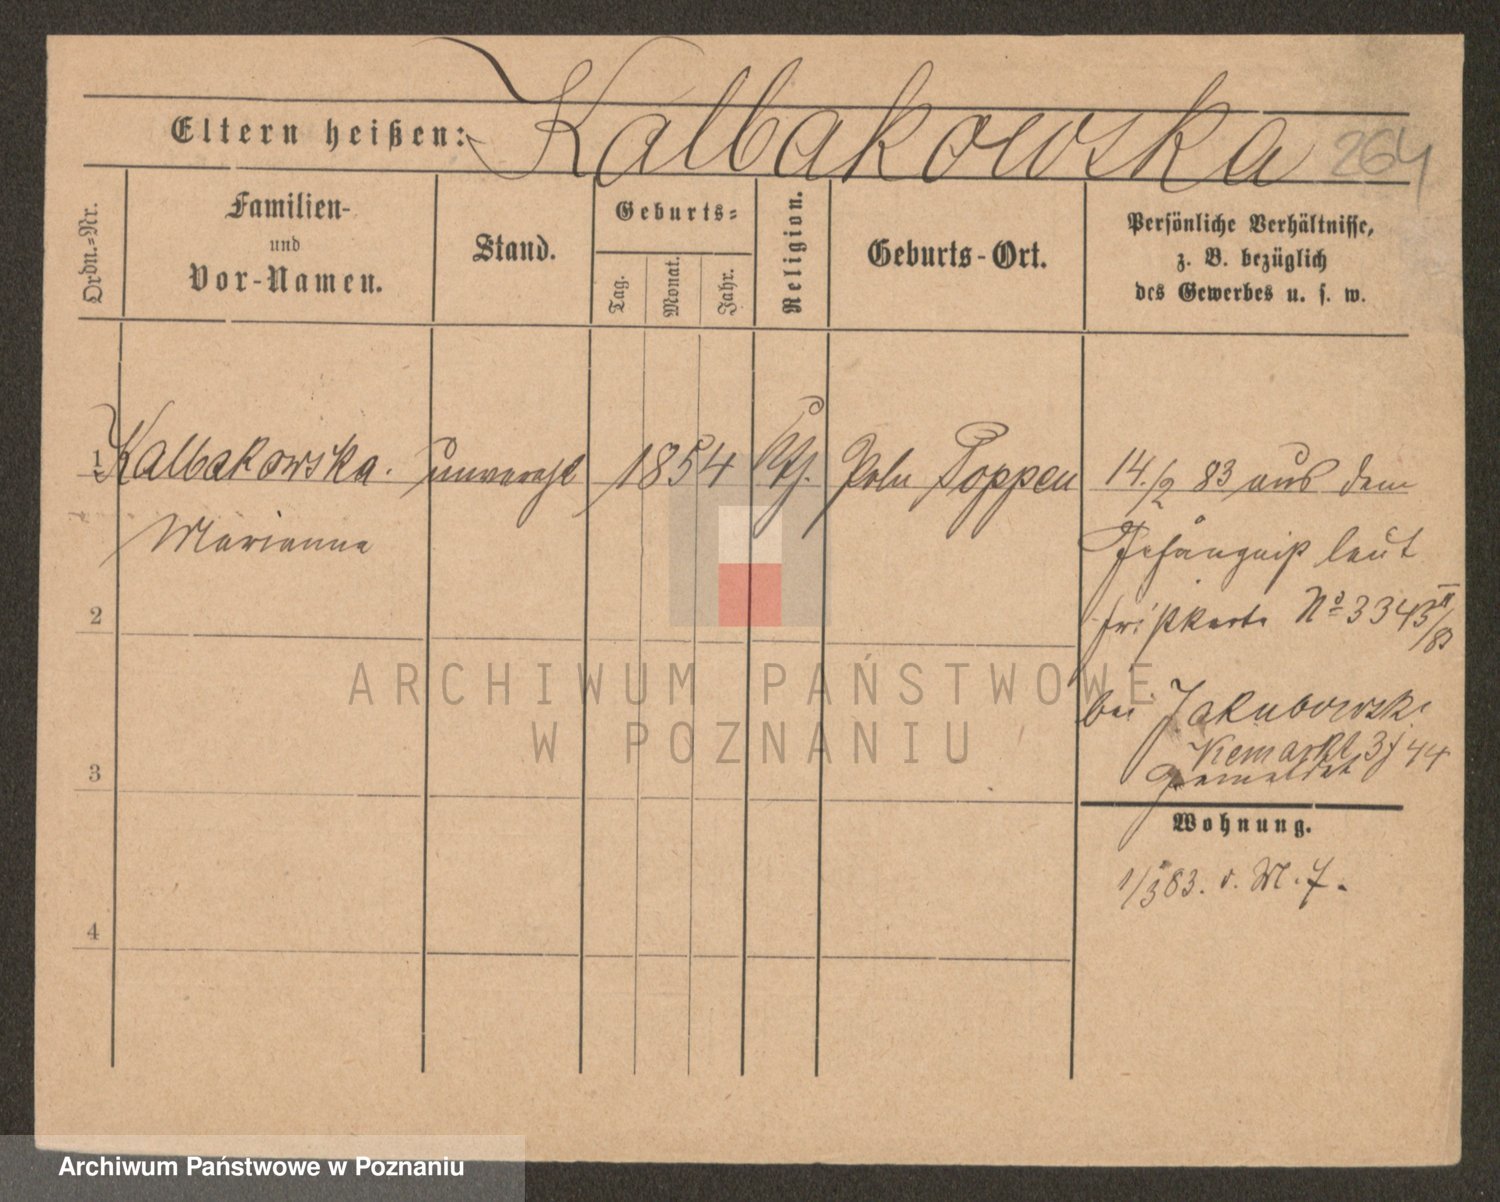 Kalbakowska
Eltern heißen:
264
Ordn.-Nr.
Familien-
und
Vor-Namen.
Stand.
Geburts-
Tag.
Monat.
Jahr.
Religion.
Geburts-Ort.
Persönliche Verhältnisse,
z. B. bezüglich
des Gewerbes u. s. w.
1 Kalbakowska. unverehl 1854 Poln Poppen 14./2 83 aus dem
Marianna
Gefängniß laut
2
Nº 3343 II/83
bei Jakubowski
gemeldet
3
Wohnung.
1/3 83. v. M. 7.
4
ARCHIWUM PAŃSTWOWE
W POZNANIU
Archiwum Państwowe w Poznaniu